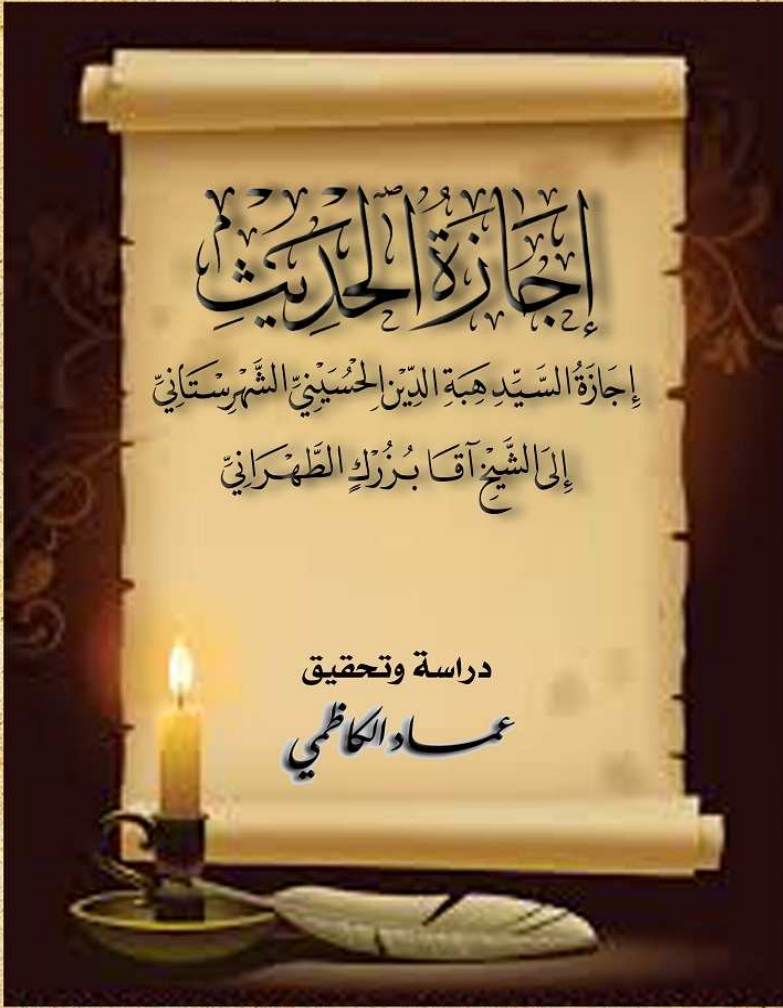 إِجَازَةُ الْحَدِيْثِ
إِجَازَةُ السَّيِّدِ هِبَةِ الدِّيْنِ الْحُسَيْنِيِّ الشَّهْرِسْتَانِيِّ
إِلَى الشَّيْخِ آقَا بُزُرْكِ الطَّهْرَانِيِّ
دراسة وتحقيق
عمـــاد الكاظمي